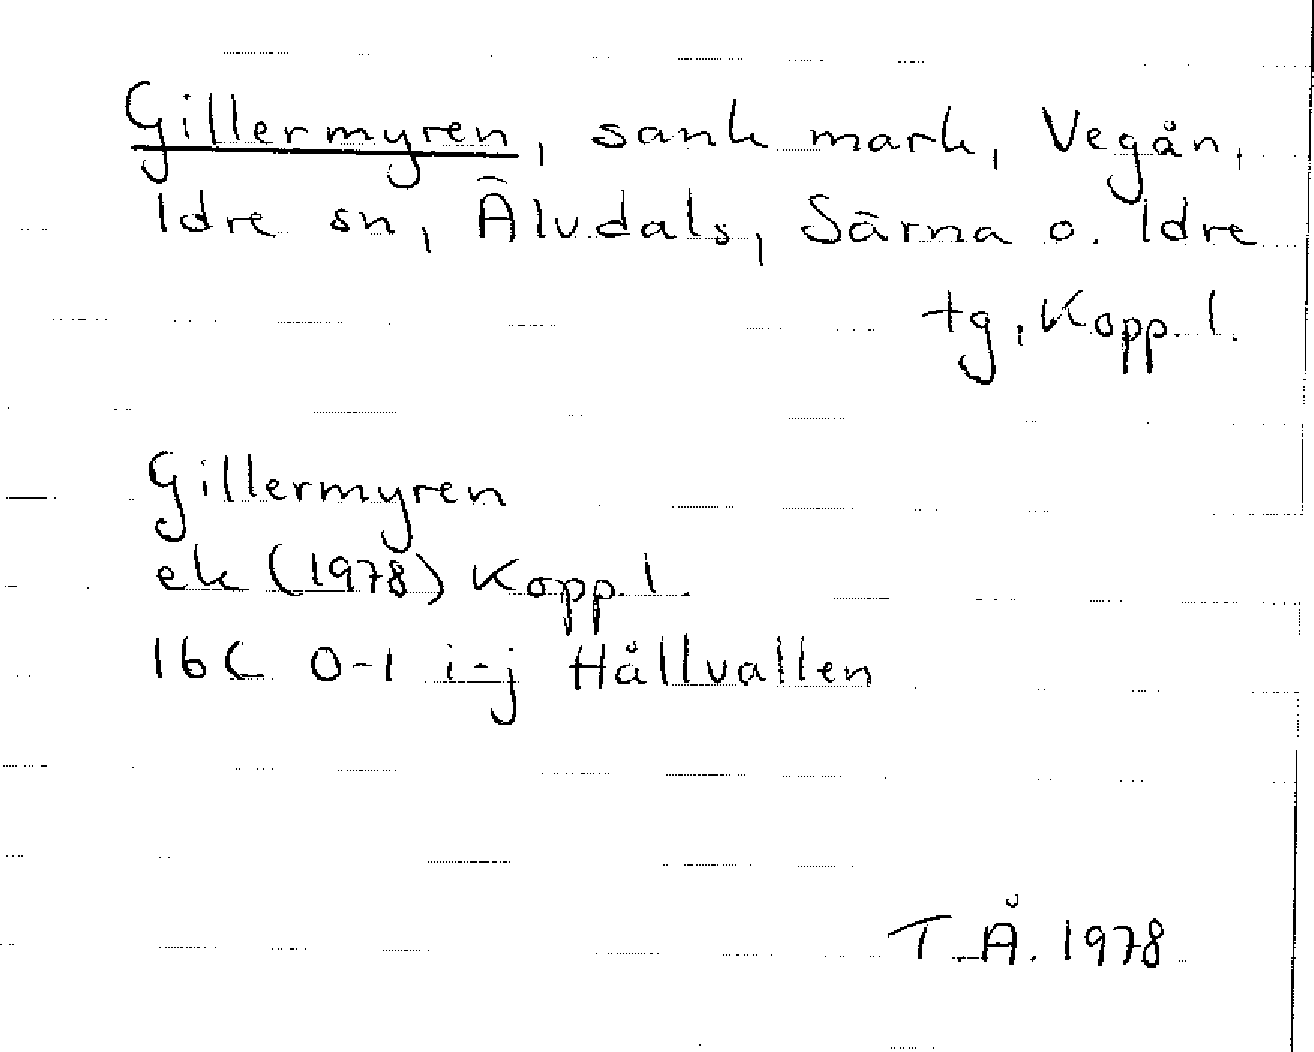 Gillermyren, sank mark, Vegån,
Idre sn, Älvdals, Särna o. Idre
tg, Kopp. l.
Gillermyren
ek (1978) Kopp. l.
16C 0-1 i-j Hållvallen
T.Å. 1978